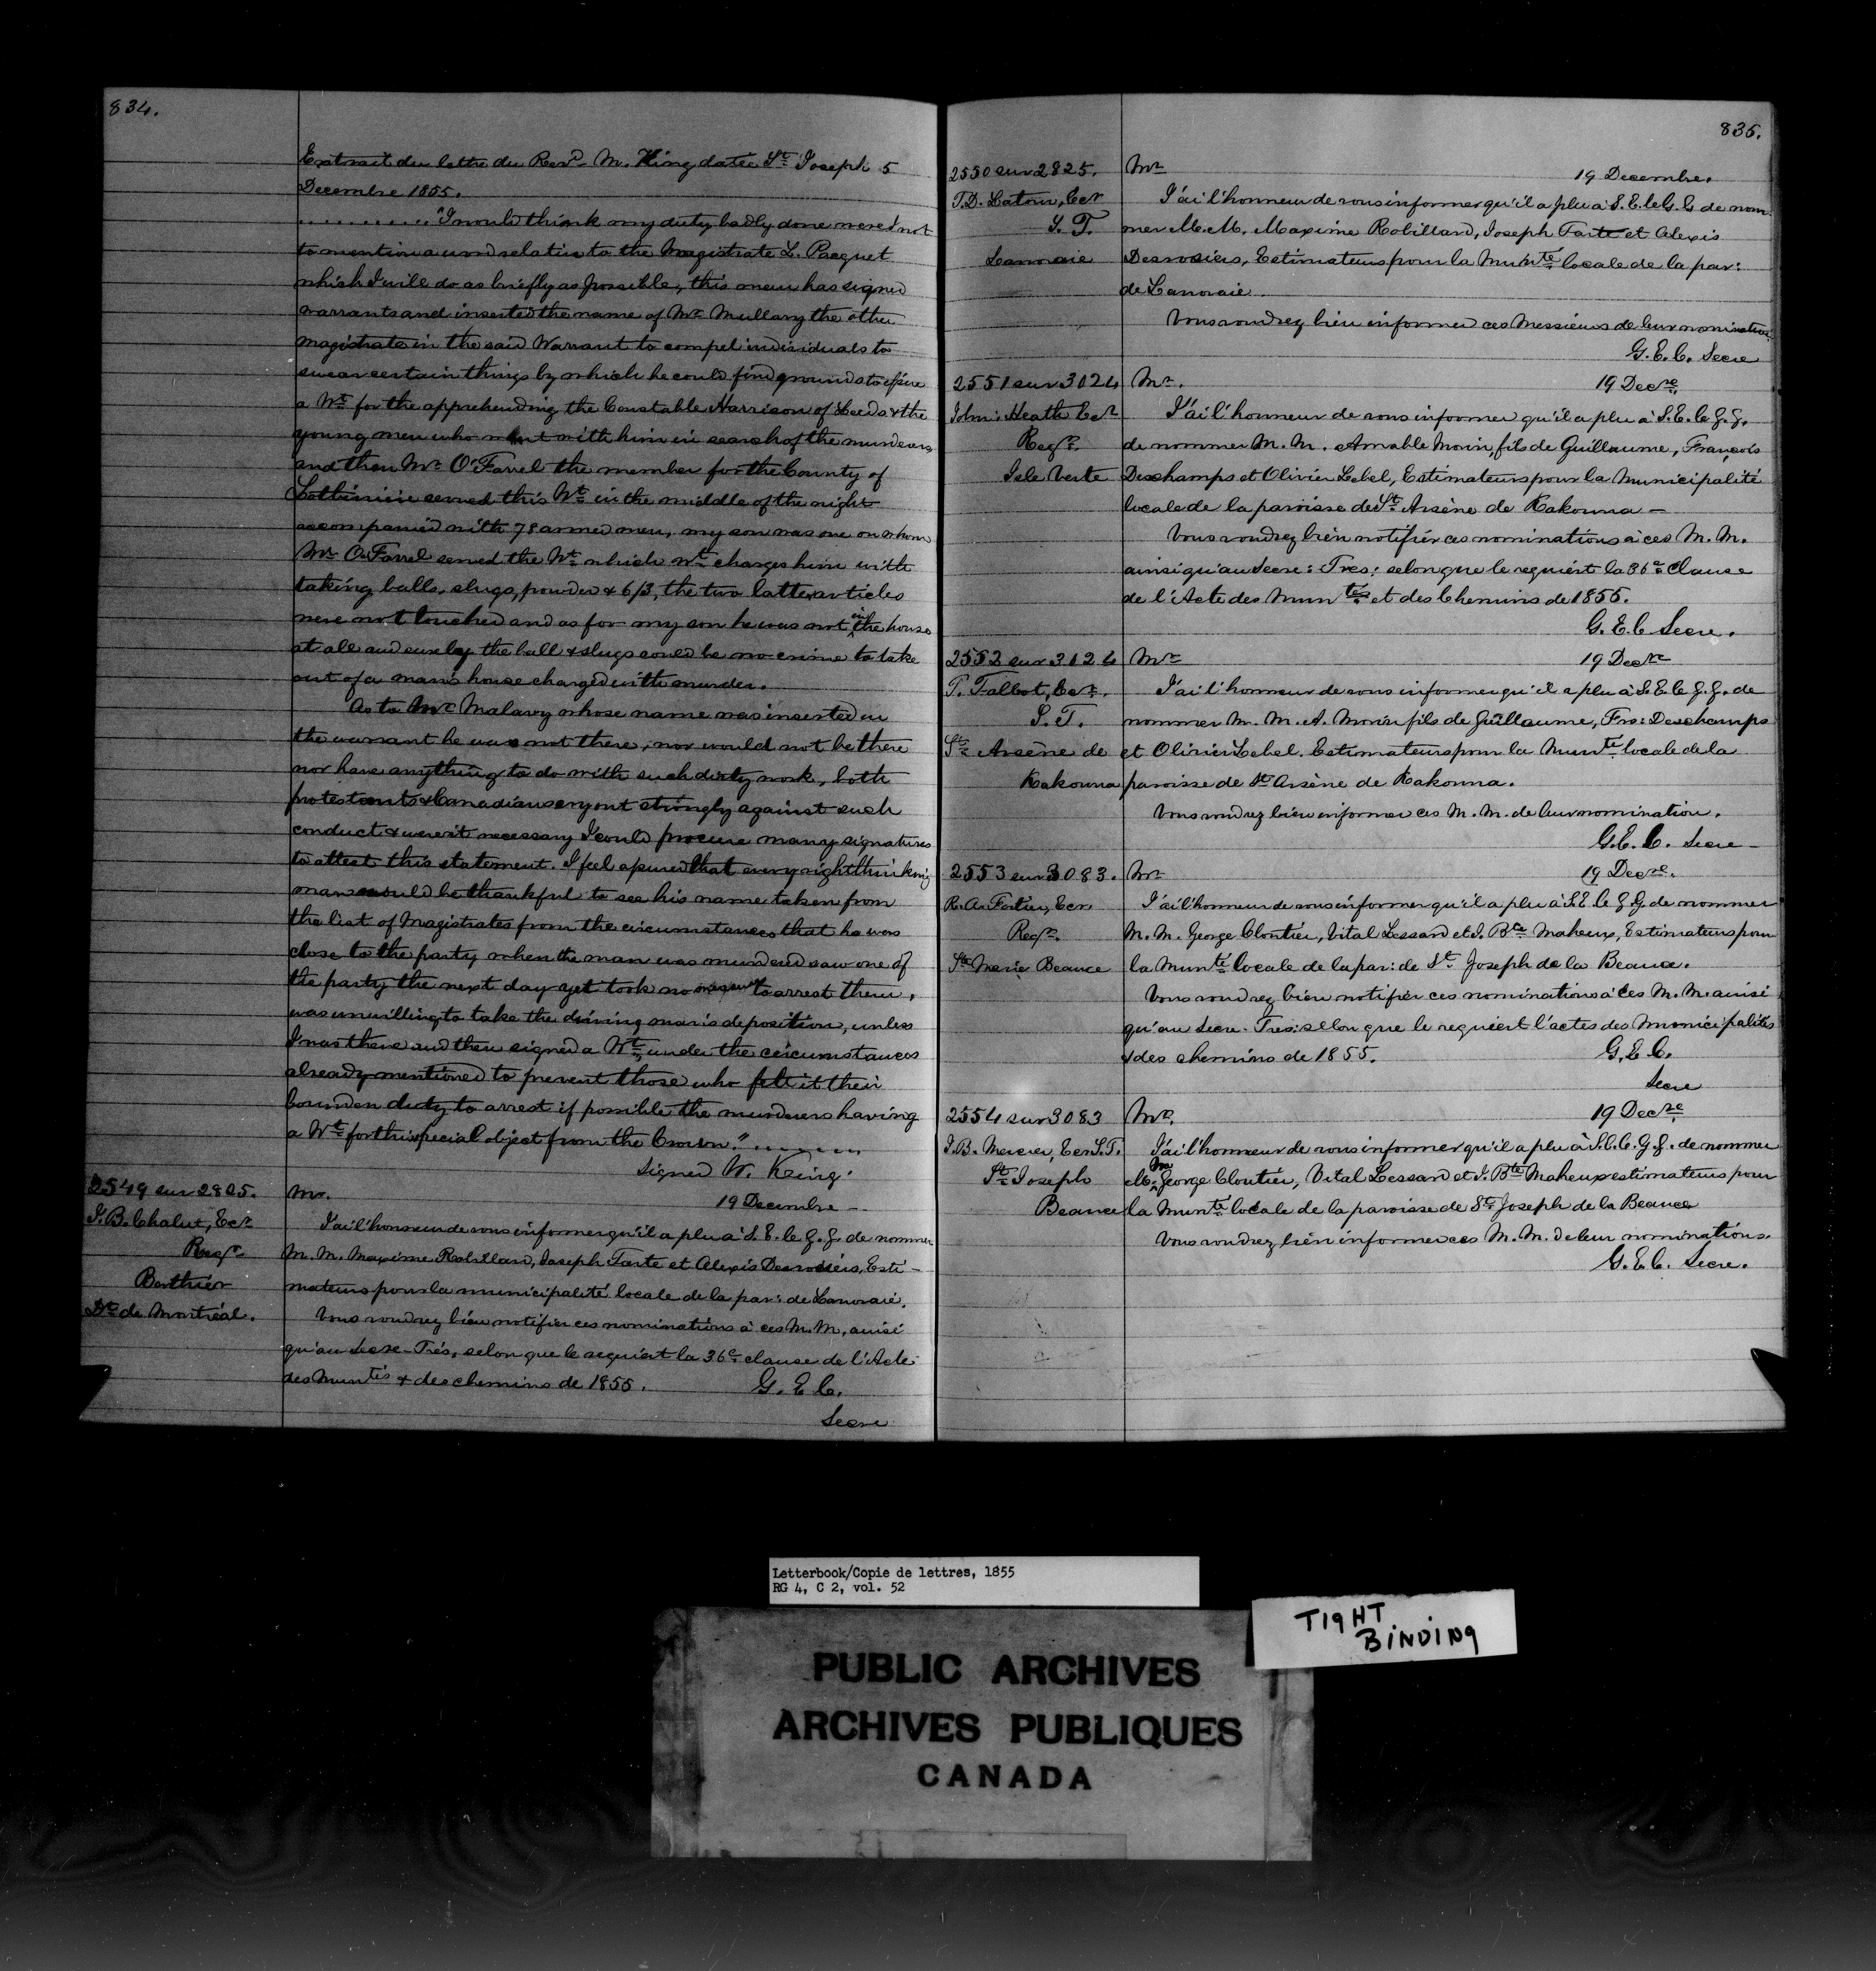 834.
Extrait du lettre du Revd. M. King datée St. Joseph 5
Decembre 1855.
............ "I would think my duty badly done were I not
to mention a word relative to the Magistrate L. Paquet
which I will do as briefly as possible, this man has signed
warrants and inserted the name of Mr. Mullavy the other
magistrate in the said Warrant to compel individuals to
swear certain things by which he could find grounds to issue
a Wt. for the apprehending the Constable Harrison of Leeds & the
young men who went with him in search of the murderers,
and then Mr. O'Farrel the member for the County of
Lotbinière served this Wt. in the middle of the night
accompanied with 78 armed men, my son was one on whom
Mr. O'Farrel served the Wt. which wt. charges him with
taking balls, slugs, powder & 6/3, the two latter articles
were not touched and as for my son he was not in the house
at all and surely the ball & slugs could be no crime to take
out of a mans house charged with murder.
As to Mr. Malavy whose name was inserted in
the warrant he was not there, nor would not be there
nor have anything to do with such dirty work, both
protestants & Canadians cry out strongly against such
conduct & were it necessary I could procure many signatures
to attest this statement. I feel assured that every right thinking
man would be thankful to see his name taken from
the list of Magistrates from the circumstances that he was
close to the party when the man was murdered saw one of
the party the next day yet took no measures to arrest them,
was unwilling to take the dining man's deposition, unless
I was there and then signed a Wt. under the circumstances
already mentioned to prevent those who felt it their
bounden duty to arrest if possible the murderers having
a Wt. for this special object from the Crown." .......
Signed W. King.
2549 sur 2825.
J. B. Chalut, Ecr.
Regr.
Berthier
Dt. de Montréal.
Mr.
19 Decembre -
J'ai l'honneur de vous informer qu'il a plu à S. E. le G. G. de nommer
M. M. Maxime Robillard, Joseph Tarte et Alexis Desrosiers, Esti-
mateurs pour la municipalité locale de la par: de Lanoraie.
Vous voudrez bien notifier ces nominations à ces M. M. ainsi
qu'au Secre-Trés. selon que le requiert la 36e. clause de l'Acte
des Muntés & des chemins de 1855.
G. E. C.
Secre
835.
2550 sur 2825.
T. D. Latour, Ecr
S. T.
Lanoraie
Mr.
19 Decembre.
J'ai l'honneur de vous informer qu'il a plu à S. E. le G. G. de nom-
mer M. M. Maxime Robillard, Joseph Tarte et Alexis
Desrosiers, Estimateurs pour la Munté. locale de la par:
de Lanoraie.
Vous voudrez bien informer ces Messieurs de leur nomination.
G. E. C. Secre
2551 sur 3124
John Heath Ecr.
Regr.
Isle Verte
Mr.
19 Decre.
J'ai l'honneur de vous informer qu'il a plu à S. E. le G. G.
de nommer M. M. Amable Morin, fils de Guillaume, François
Deschamps et Olivier Lebel, Estimateurs pour la Municipalité
locale de la paroisse de St. Arsène de Kakouna -
Vous voudrez bien notifier ces nominations à ces M. M.
ainsi qu'au Secre: Tres: selon que le requiert la 36e. Clause
de l'Acte des Muntés. et des Chemins de 1855.
G. E. C Secre.
2552 sur 3124
P. Talbot, Ecr.
S. T.
St. Arsène de
Kakouna
Mr.
19 Decre
J'ai l'honneur de vous informer qu'il a plu à S. E. le G. G. de
nommer M. M. A. Morin fils de Guillaume, Frs: Deschamps
et Olivier Lebel. Estimateurs pour la Munté. locale de la
paroisse de St. Arsène de Kakouna.
Vous voudrez bien informer ces M. M. de leur nomination.
G. E. C. Secre -
2553 sur 3083.
R. A. Fortier, Ecr.
Regr.
Ste Marie Beauce
Mr.
19 Decre.
J'ai l'honneur de vous informer qu'il a plu à S. E. le G. G. de nommer
M. M. George Cloutier, Vital Lessard et J. Bte. Maheux, Estimateurs pour
la Munté locale de la par: de St. Joseph de la Beauce.
Vous voudrez bien notifier ces nominations à ces M. M. ainsi
qu'au Secre-Tres: selon que le requiert l'actes des Municipalités
& des chemins de 1855.
G. E. C.
Secre
2554 sur 3083
J. B. Mercier, Ecr S. T.
St. Joseph
Beauce
Mr.
19 Decre.
J'ai l'honneur de vous informer qu'il a plu à S. E. le. G. G. de nommer
M. M George Cloutier, Vital Lessard et J. Bte. Maheux estimateurs pour
la Munté. locale de la paroisse de St. Joseph de la Beauce
Vous voudrez bien informer ces M. M. de leur nominations.
G. E. C. Secre.
Letterbook/Copie de lettres, 1855
RG 4, C 2, vol. 52
TIGHT
BINDING
PUBLIC ARCHIVES
ARCHIVES PUBLIQUES
CANADA